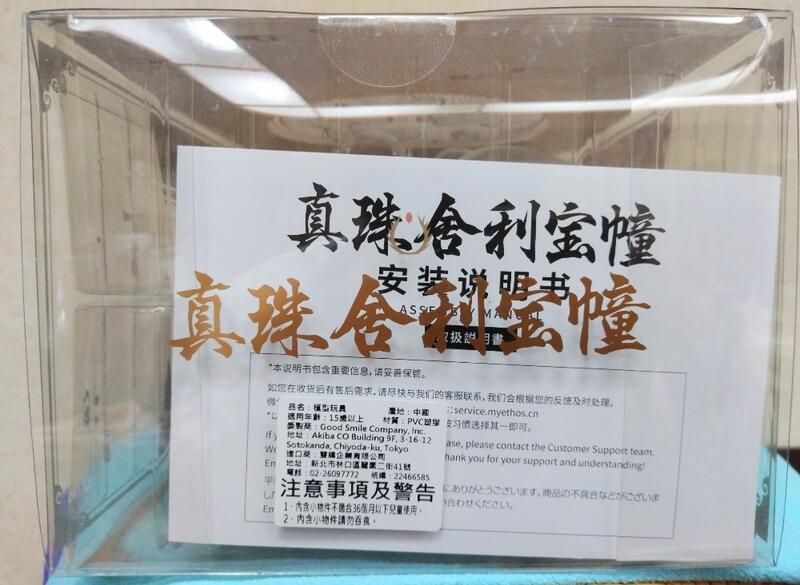 真珠舍利宝幢
安装说明书
ASSEMBLY MANUAL
取扱説明書
真珠舍利宝幢
*本说明书包含重要信息,请妥善保管。
如您在收货后有售后需求,请尽快与我们的客服联系,我们会根据您的反馈及时处理。
: service.myethos.cn
安习惯选择其一即可。
ase, please contact the Customer Support team.
Thank you for your support and understanding!
にありがとうございます。商品の不具合などがございま
い合わせください。
品名:模型玩具 產地:中國
適用年齡:15歲以上 材質:PVC塑膠
委製商:Good Smile Company, Inc.
地址:Akiba CO Building 9F, 3-16-12
Sotokanda, Chiyoda-ku, Tokyo
進口商:雙緯企業有限公司
地址:新北市林口區麗業二街41號
電話:02-26097772 統編:22466585
注意事項及警告
1、內含小物件不適合36個月以下兒童使用。
2、內含小物件請勿吞食。